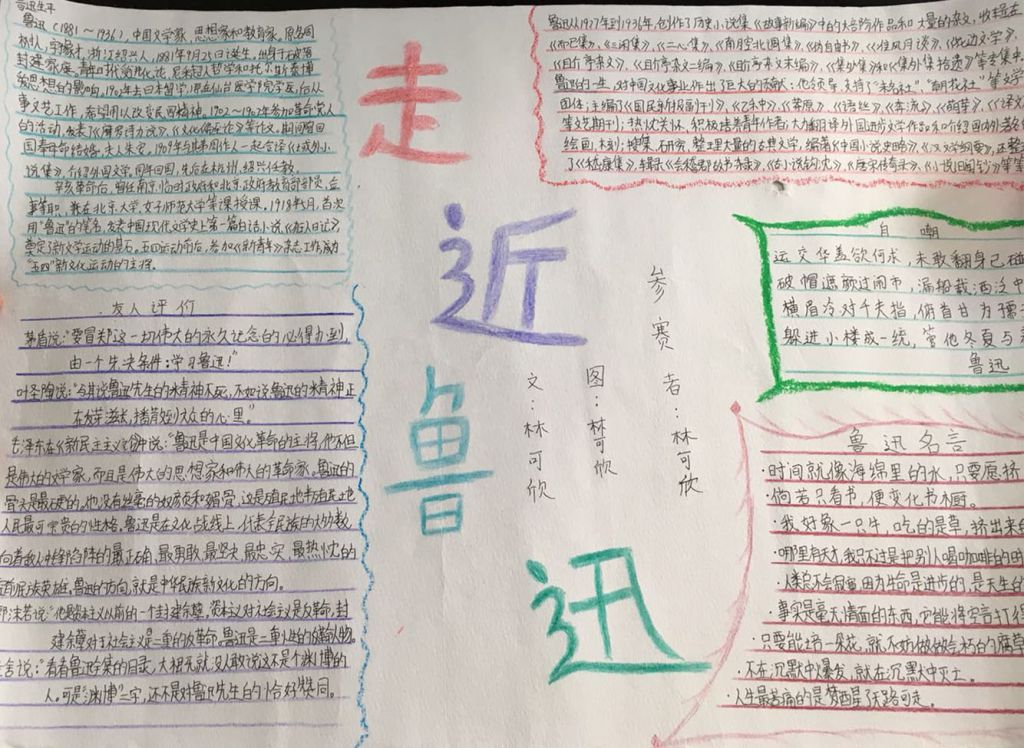 鲁迅生平
鲁迅（1881～1936），中国文学家、思想家和教育家，原名周
树人，字豫才，浙江绍兴人，1881年9月25日诞生，出身于破落
封建家庭。青年时代受进化论、尼采超人哲学和托尔斯泰博
爱思想的影响，1902年去日本留学，原在仙台医学院学医，后从
事文艺工作，希望用以改变国民精神。1905～1907年参加革命党人
的活动，发表了《摩罗诗力说》、《文化偏至论》等论文。期间曾回
国奉母命结婚，夫人朱安。1909年与其弟周作人一起合译《域外小
说集》，介绍外国文学。同年回国，先后在杭州、绍兴任教。
辛亥革命后，曾任南京临时政府和北京政府教育部部员、佥
事等职，兼在北京大学、女子师范大学等课授课。1918年5月，首次
用"鲁迅"的笔名，发表中国现代文学史上第一篇白话小说《狂人日记》，
奠定了新文学运动的基石。五四运动前后，参加《新青年》杂志工作，成为
"五四"新文化运动的主将。
友人评价
茅盾说："要冒关于这一切伟大的永久记念的必得办到，
由一个先决条件：学习鲁迅！"
叶圣陶说："与其说鲁迅先生的精神不死，不如说鲁迅的精神正
在发芽滋长，播散到大众的心里。"
毛泽东在《新民主主义论》中说："鲁迅是中国文化革命的主将，他不但
是伟大的文学家，而且是伟大的思想家和伟大的革命家，鲁迅的
骨头是最硬的，他没有丝毫的奴颜和媚骨，这是殖民地半殖民地
人民最可宝贵的性格。鲁迅是在文化战线上，代表全民族的大多数，
向着敌人冲锋陷阵的最正确、最勇敢、最坚决、最忠实、最热忱的
民族英雄。鲁迅的方向，就是中华民族新文化的方向。
建余孽对于社会主义是二重的反革命。鲁迅是二重
舍说："看看鲁迅全集的目录，大概先就没人敢说这不是个渊博的
人。可是'渊博'二字，还不是对鲁迅先生的恰好赞同。
走
近
鲁
迅
参赛者：林可欣
图：林可欣
文：林可欣
鲁迅从1927年到1936年，创作了历史小说集《故事新编》中的大部分作品和大量的杂文，收辑在
《而已集》、《三闲集》、《二心集》、《南腔北调集》、《伪自由书》、《准风月谈》、《花边文学》、
《且介亭杂文》、《且介亭杂文二编》、《且介亭杂文末编》、《集外集》和《集外集拾遗》等专集中。
鲁迅的一生，对中国文化事业作出了巨大的贡献：他领导、支持了"未名社"、"朝花社"等文学
团体；主编了《国民新报副刊》、《莽原》、《语丝》、《奔流》、《萌芽》、《译文》
等文艺期刊；热忱关怀、积极培养青年作者；大力翻译外国进步文学作品和介绍国内外著名
绘画、木刻；搜集、研究、整理大量的古典文学，编著《中国小说史略》、《汉文学纲要》，还整
了《嵇康集》，辑录《会稽郡故书杂录》、《古小说钩沉》、《唐宋传奇录》、《小说旧闻钞》等等
自嘲
运交华盖欲何求，未敢翻身已
破帽遮颜过闹市，漏船载酒泛中
横眉冷对千夫指，俯首甘为孺
躲进小楼成一统，管他冬夏与
鲁迅
鲁迅名言
·时间就像海绵里的水，只要愿挤
·倘若只看书，便变化书橱。
·我好象一只牛，吃的是草，挤出来
·哪里有天才，我只不过是把别人喝咖啡的时
·人类总不会寂寞，因为生命是进步的，是天生的
·事实是毫无情面的东西，它能将空言打
·只要能培一朵花，就不妨做做会朽的腐草
·不在沉默中爆发，就在沉默中灭亡。
·人生最苦痛的是梦醒了无路可走。